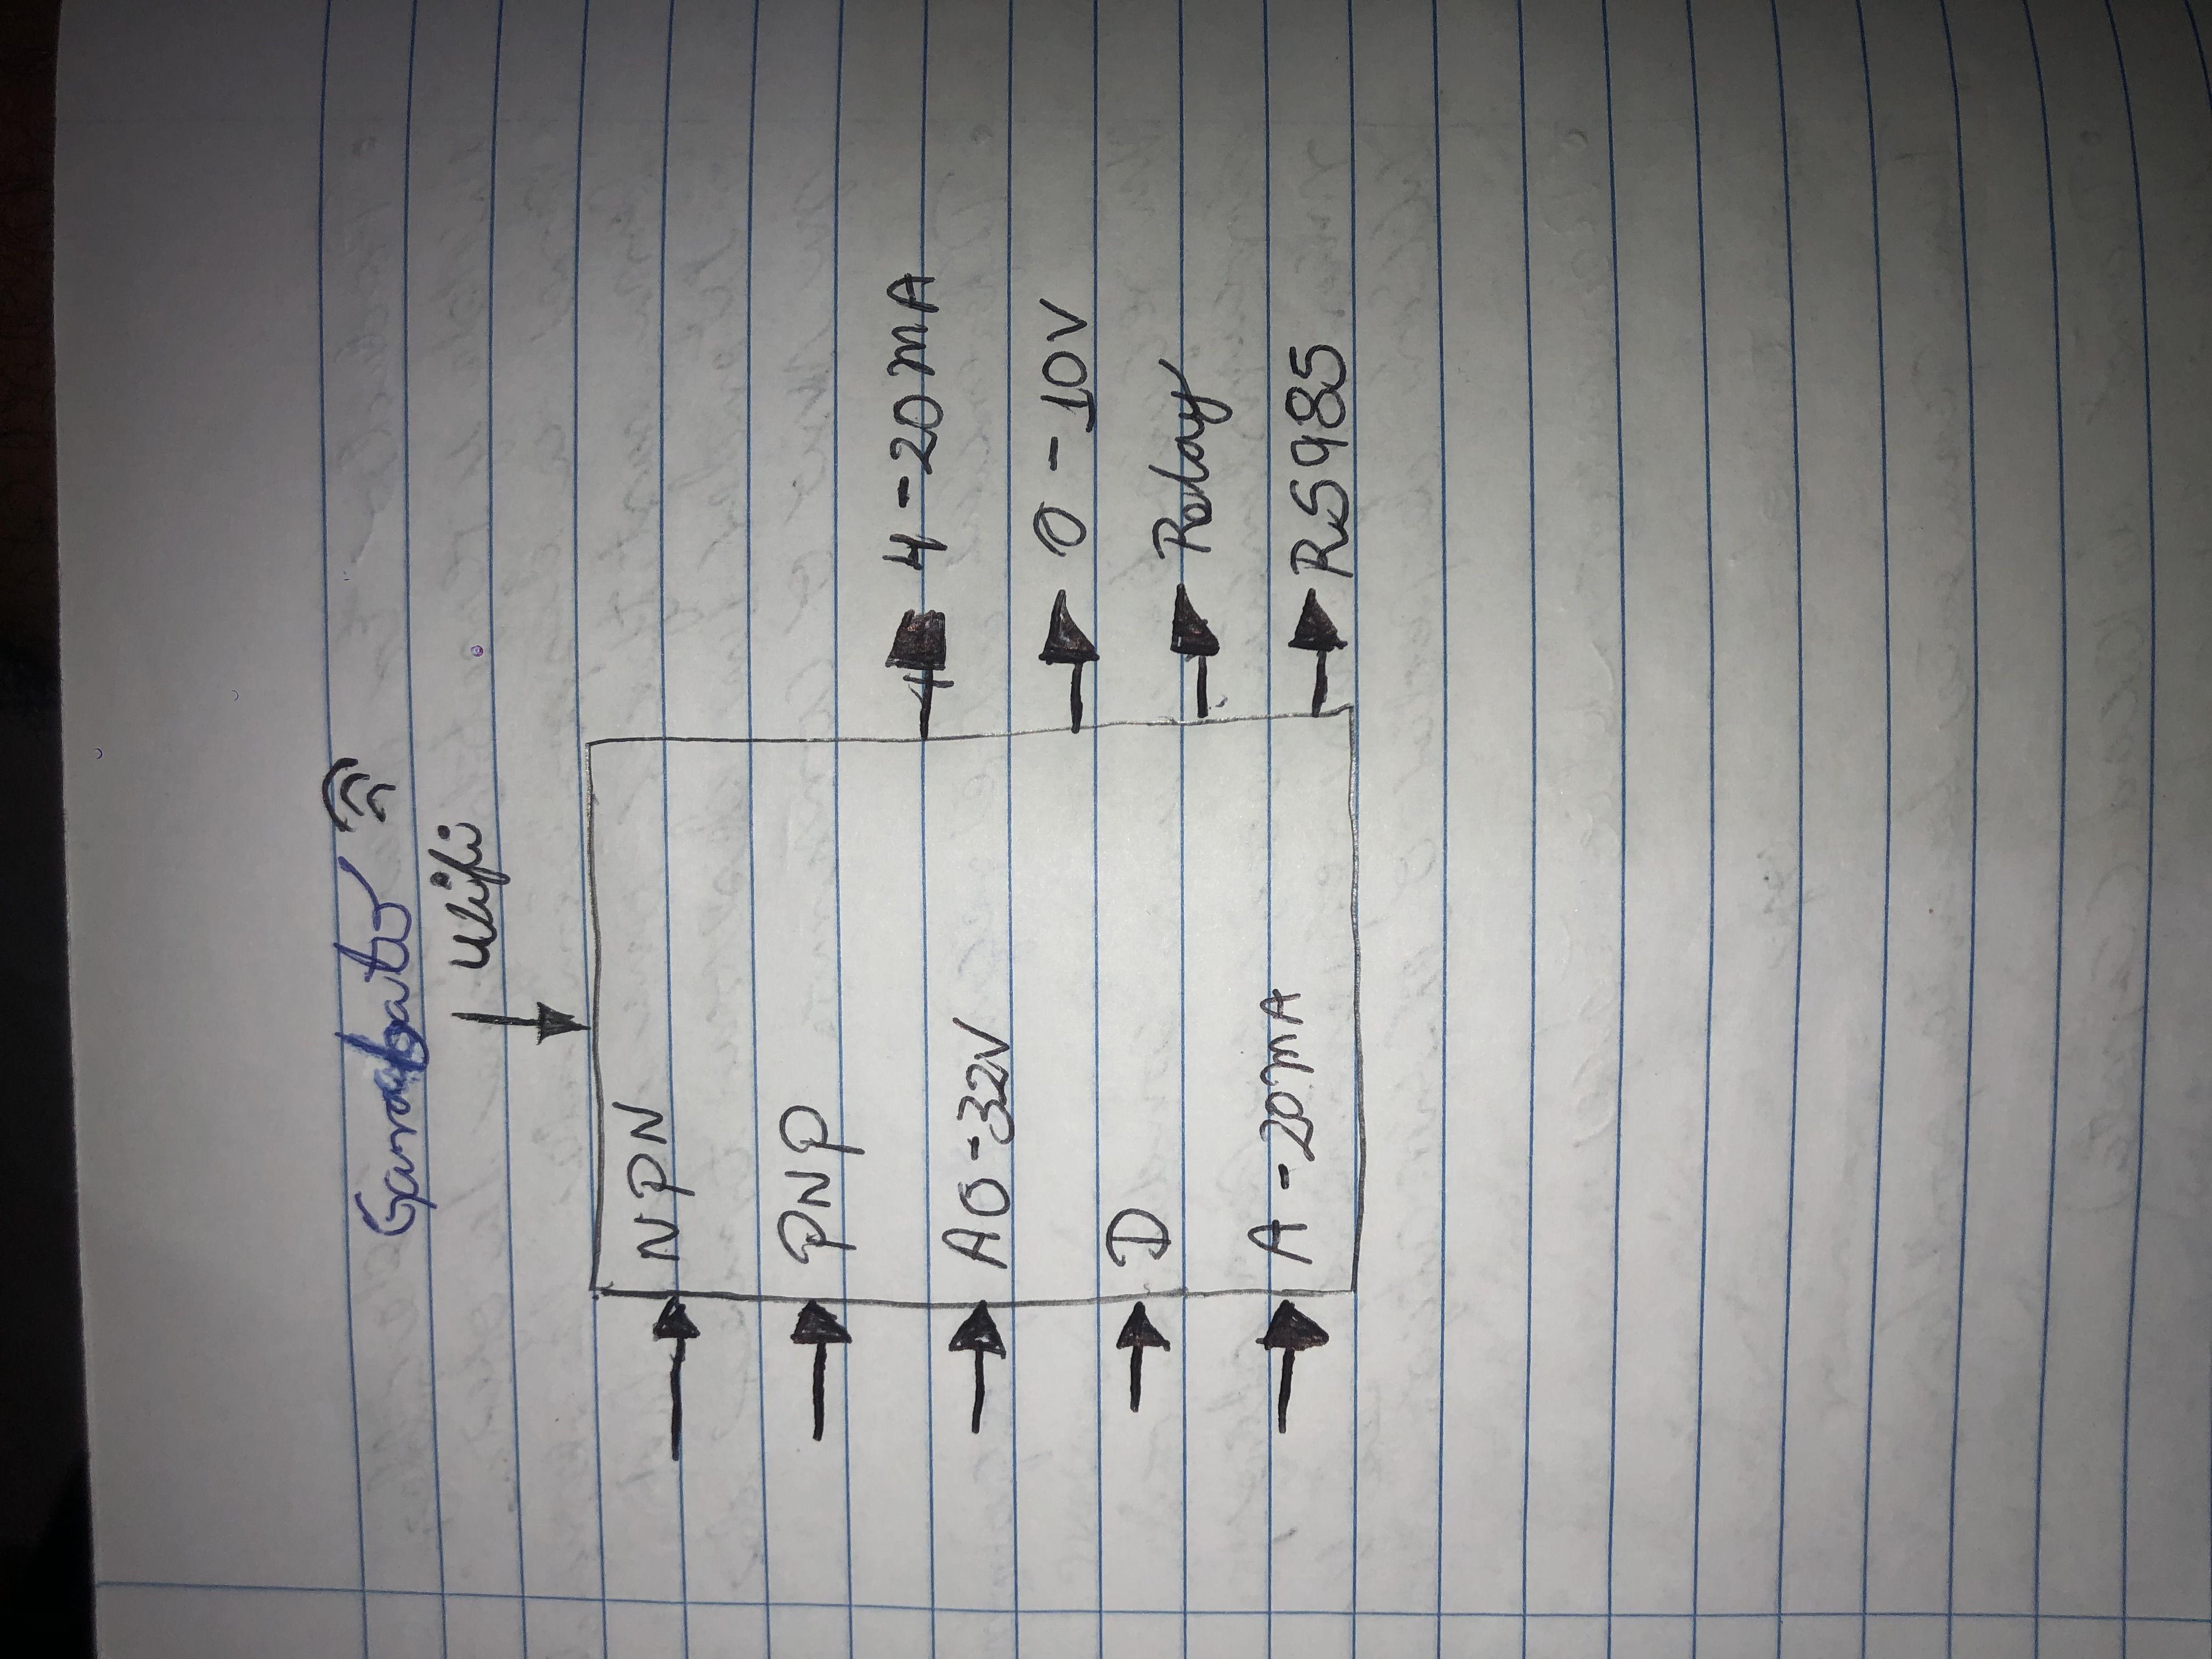 Garabato
Wifi
NPN
PNP
A0-32V
D
A-20mA
4-20mA
0-10V
Relay
RS985